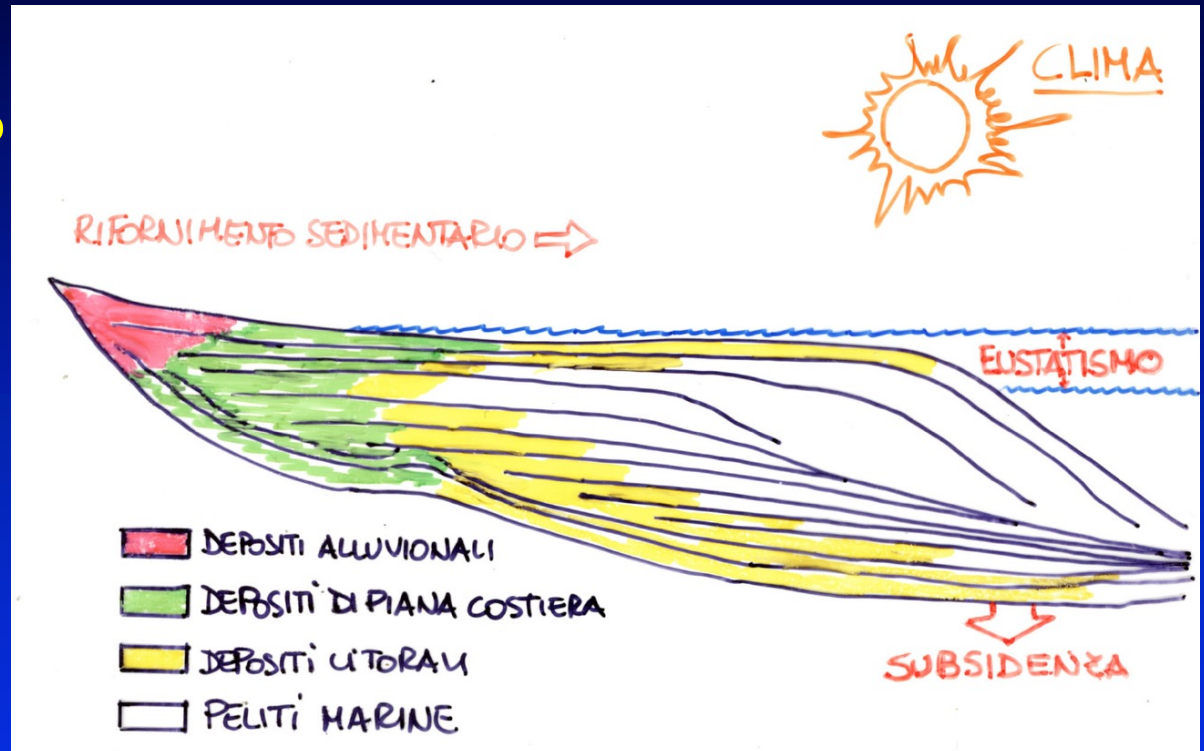 CLIMA
RIFORNIMENTO SEDIMENTARIO
EUSTATISMO
DEPOSITI ALLUVIONALI
DEPOSITI DI PIANA COSTIERA
DEPOSITI LITORALI
PELITI MARINE
SUBSIDENZA